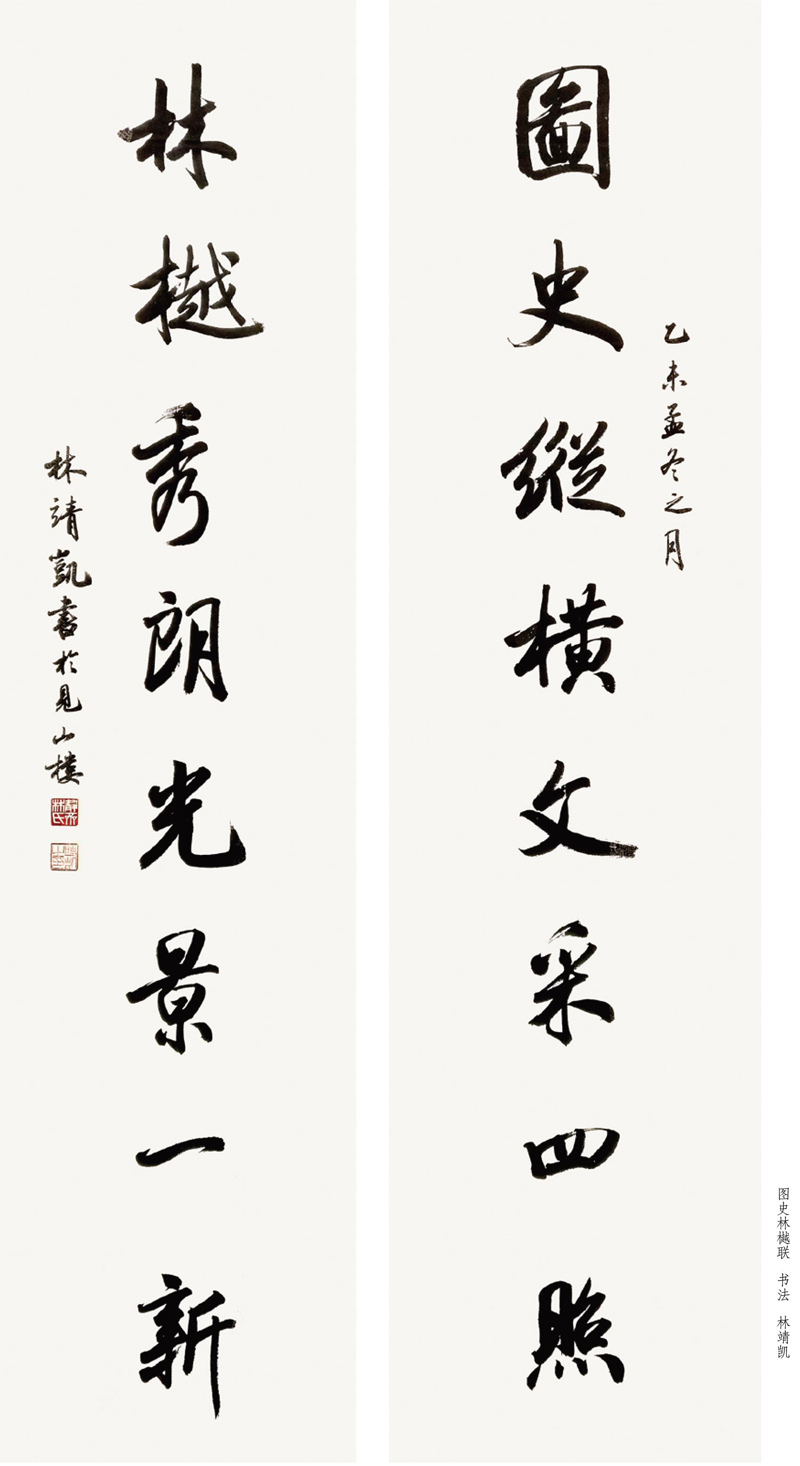 乙未孟冬之月
圖史縱橫文采四照
林樾秀朗光景一新
林靖凱書於見山樓
图史林樾联 书法 林靖凯